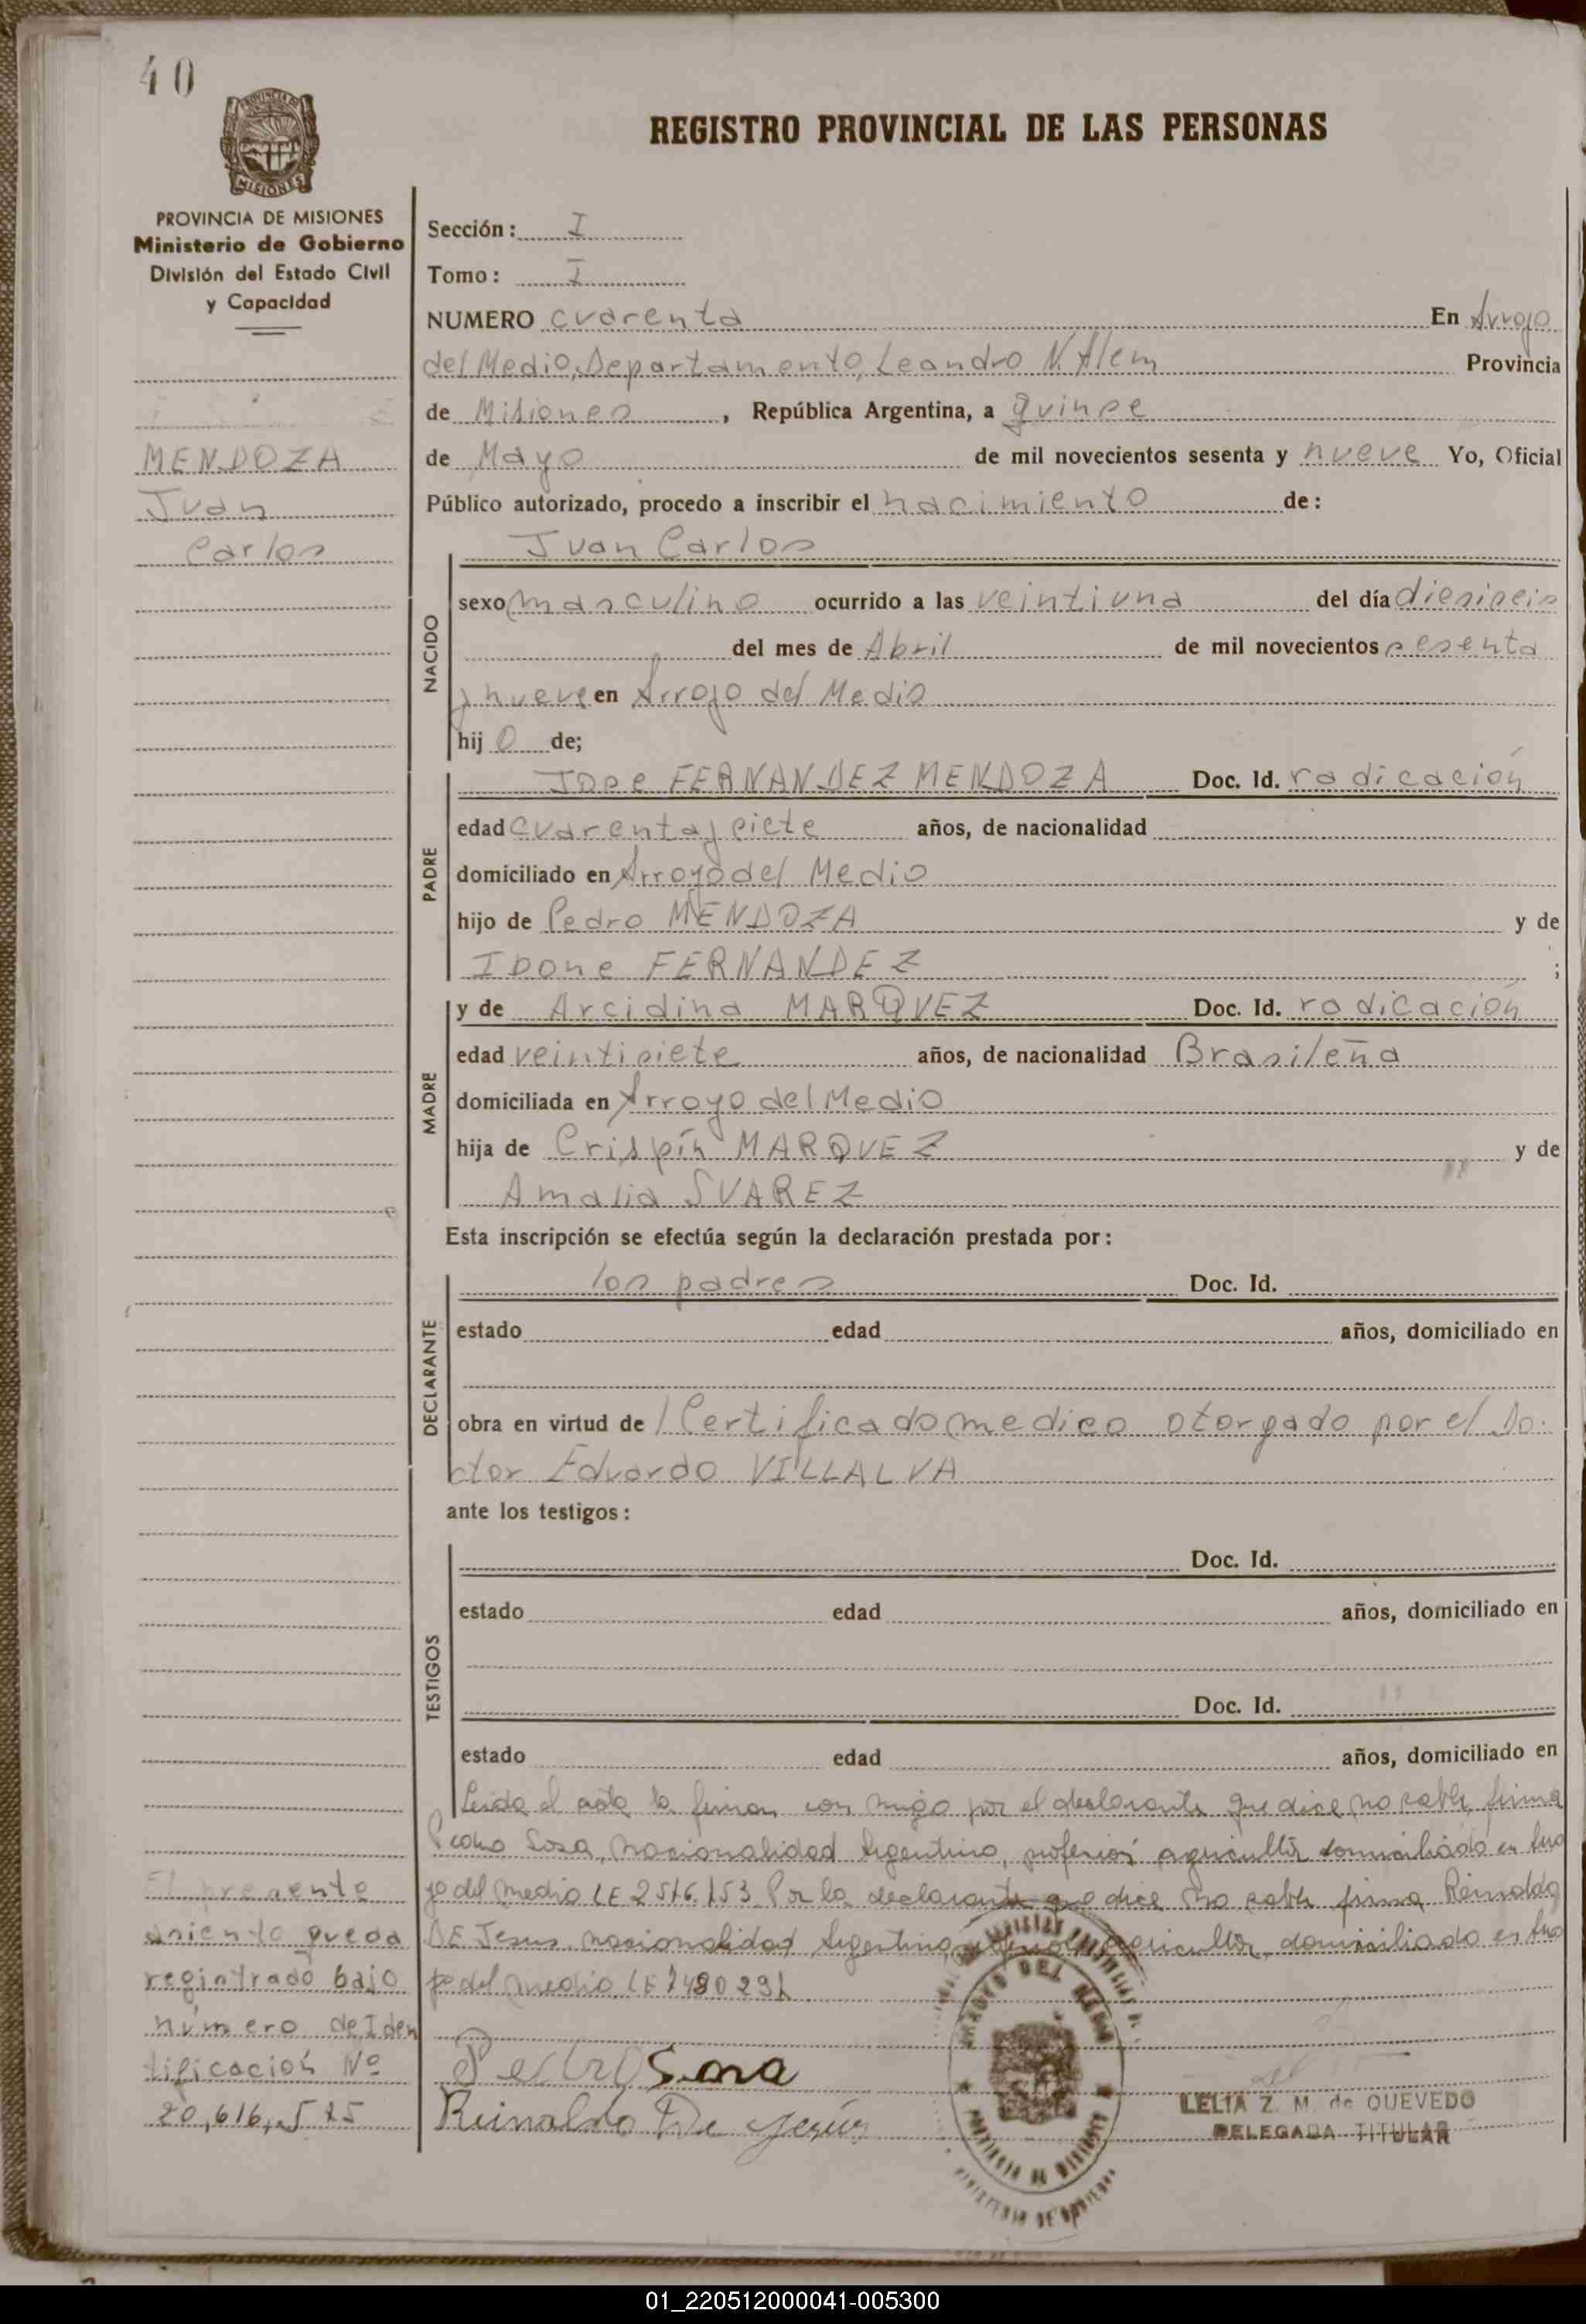 40
REGISTRO PROVINCIAL DE LAS PERSONAS
PROVINCIA DE MISIONES
Ministerio de Gobierno
División del Estado Civil
y Capacidad
MENDOZA
Juan
Carlos
Sección: I
Tomo: I
NUMERO cuarenta En Arroyo
del Medio, Departamento, Leandro N. Alem Provincia
de Misiones, República Argentina, a quinse
de Mayo de mil novecientos sesenta y nueve Yo, Oficial
Público autorizado, procedo a inscribir el nacimiento de:
Juan Carlos
NACIDO
sexo masculino ocurrido a las veintiuna del día diesiseis
del mes de Abril de mil novecientos sesenta
y nueve en Arroyo del Medio
hij o de;
PADRE
Jose FERNANDEZ MENDOZA Doc. Id. radicación
edad cuarenta y siete años, de nacionalidad
domiciliado en Arroyo del Medio
hijo de Pedro MENDOZA y de
Idone FERNANDEZ ;
MADRE
y de Arcidina MARQUEZ Doc. Id. radicación
edad veintisiete años, de nacionalidad Brasileña
domiciliada en Arroyo del Medio
hija de Crispín MARQUEZ y de
Amalia SUAREZ
Esta inscripción se efectúa según la declaración prestada por:
DECLARANTE
los padres Doc. Id.
estado edad años, domiciliado en
obra en virtud de 1 Certificado medico otorgado por el Do-
ctor Eduardo VILLALVA
ante los testigos:
TESTIGOS
Doc. Id.
estado edad años, domiciliado en
Doc. Id.
estado edad años, domiciliado en
Leida el acta la firman con migo por el declarante que dice no sabe firma
Pedro Sosa, nacionalidad Argentino, profesión agricultor domiciliado en Arro
yo del medio LE 2516.153 Por la declarante que dice no sabe firma Reinaldo
DE Jesus nacionalidad Argentino, agricultor, domiciliado en Arro
yo del medio LE 7480291
El presente
asiento queda
registrado bajo
número de Iden
tificación Nº
20,616,525
Pedro Sosa
Reinaldo De Jesús
ARROYO DEL MEDIO
PROVINCIA DE MISIONES
MINISTERIO DE GOBIERNO
LELIA Z. M. de QUEVEDO
DELEGADA TITULAR
01_220512000041-005300